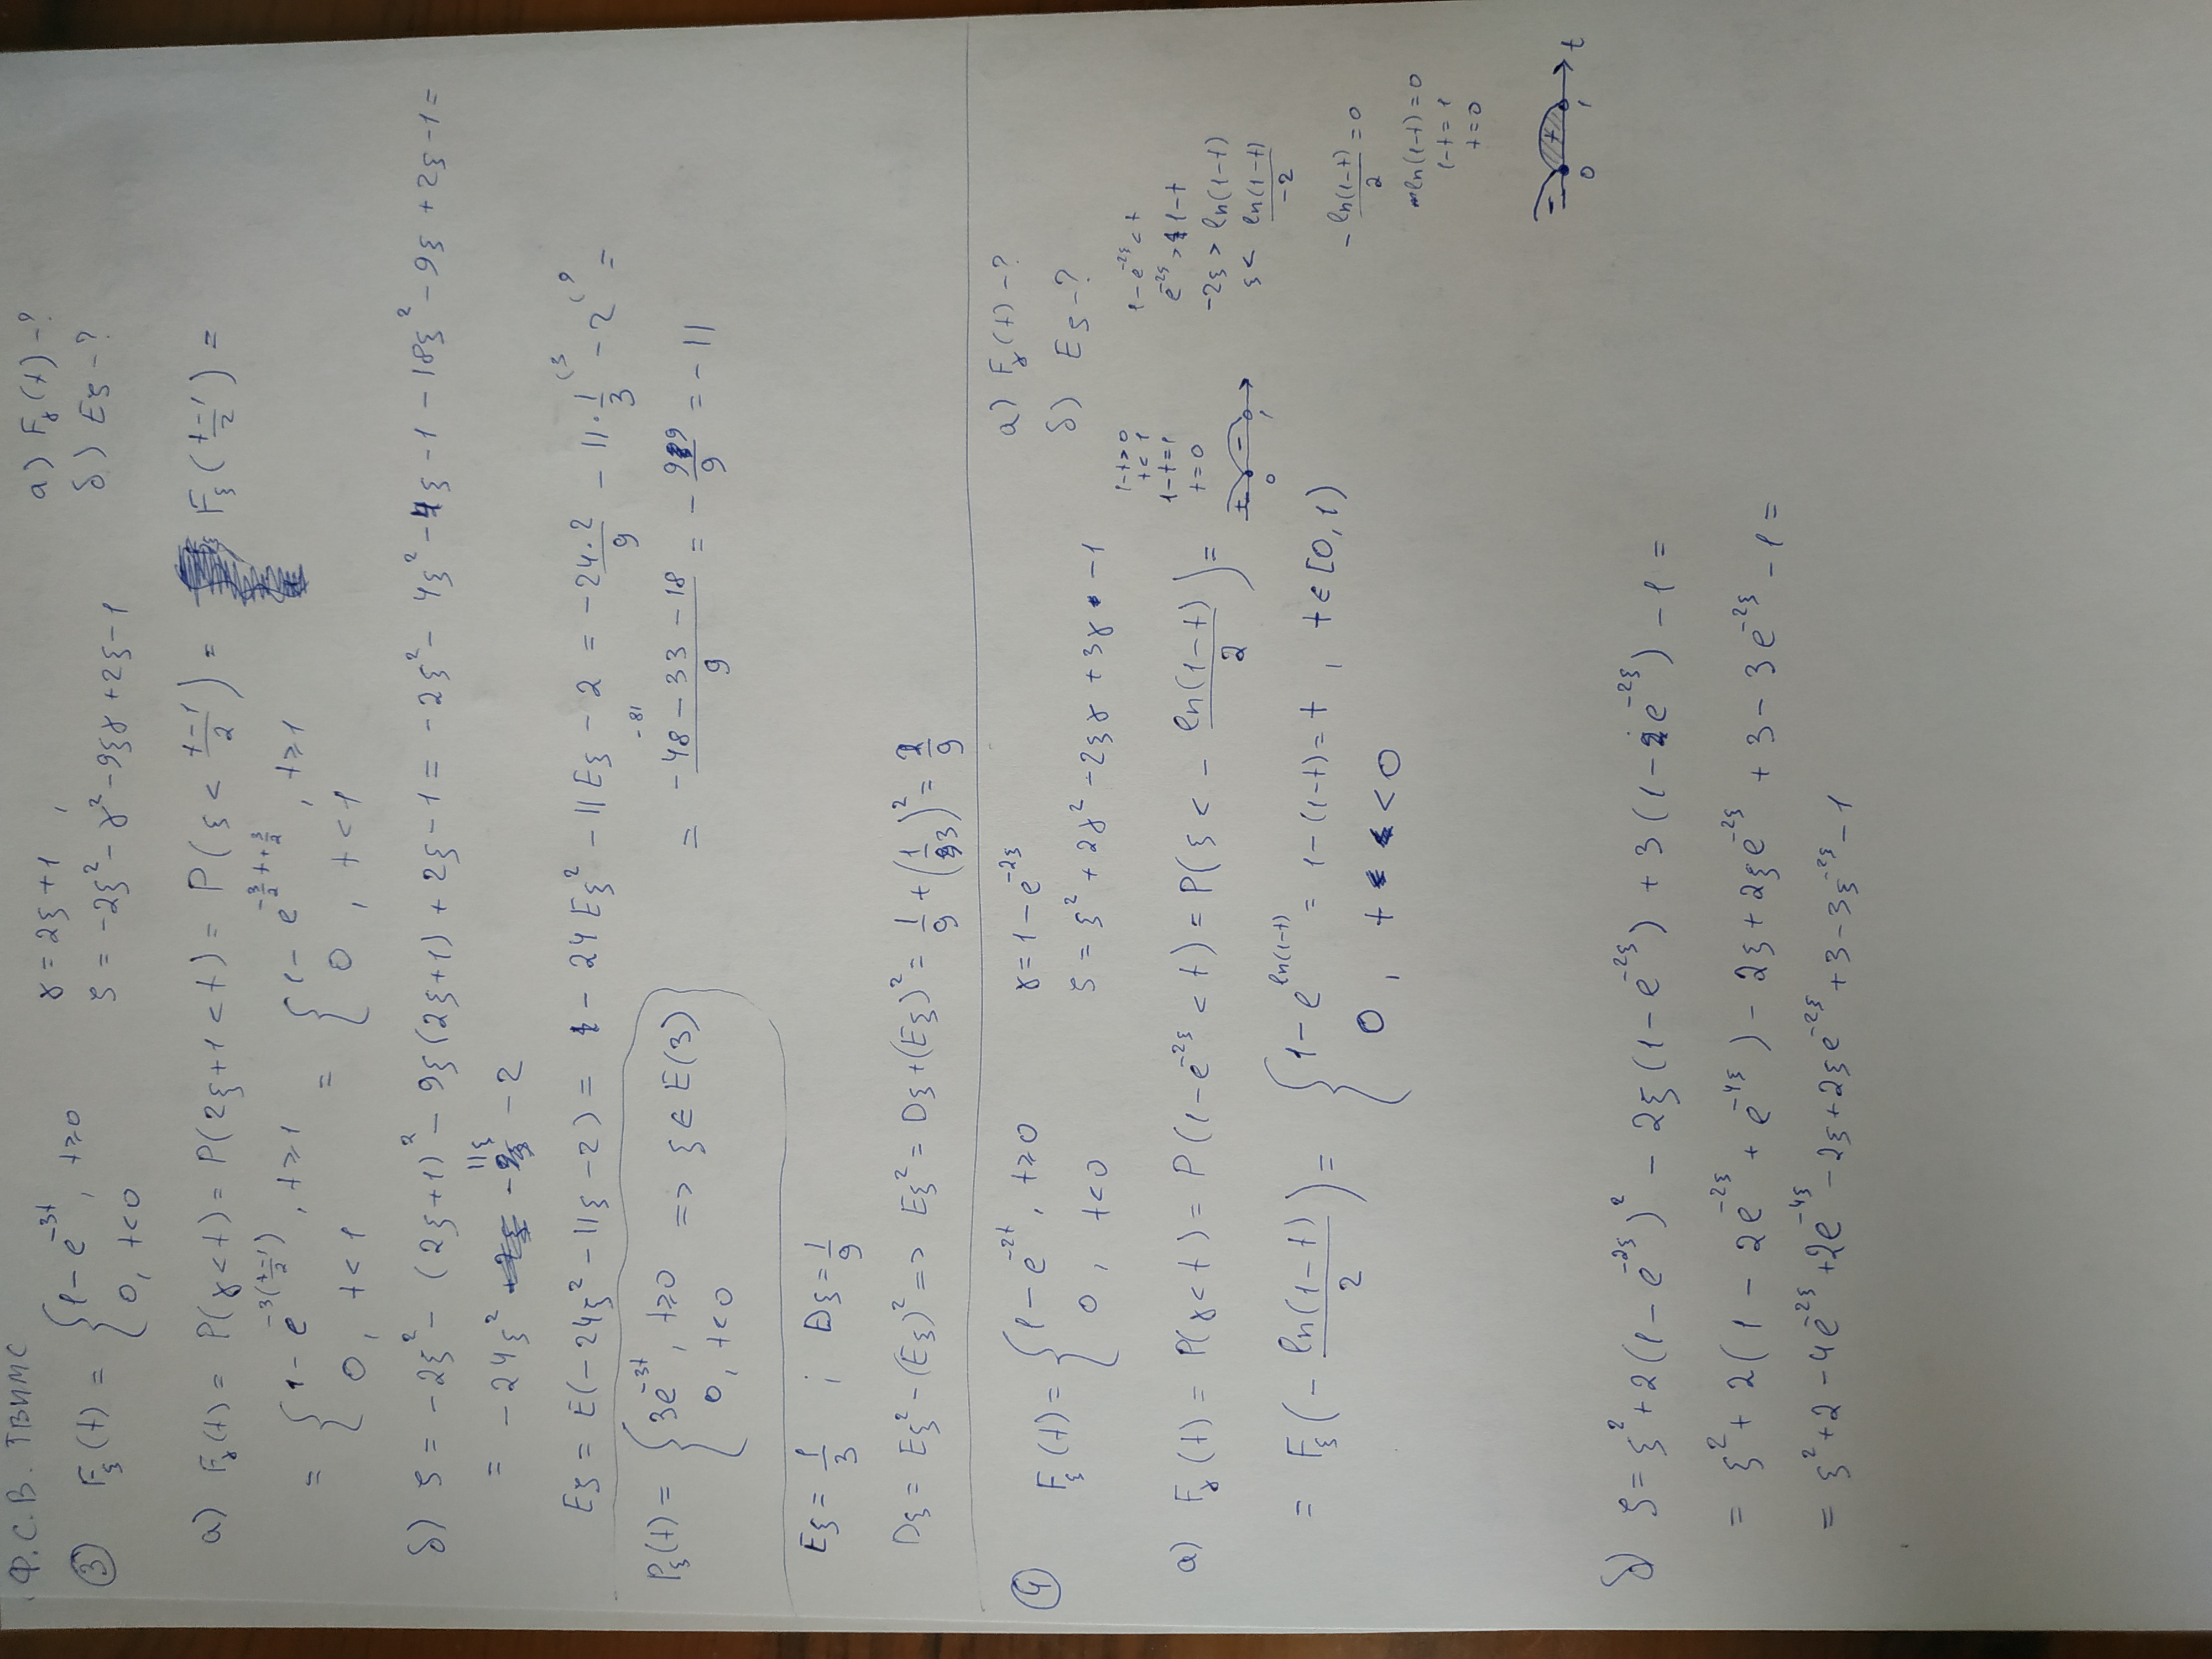 Ф.С.В. ТВИМС
③ F_ξ(t) = { 1 - e^{-3t}, t ≥ 0
0, t < 0
γ = 2ξ + 1,
ζ = -2ξ² - γ² - 9ξγ + 2ξ - 1
а) F_γ(t) - ?
б) Eζ - ?
а) F_γ(t) = P(γ < t) = P(2ξ + 1 < t) = P(ξ < (t-1)/2) = F_ξ((t-1)/2) =
= { 1 - e^{-3((t-1)/2)}, t ≥ 1
0, t < 1
= { 1 - e^{-3/2 t + 3/2}, t ≥ 1
0, t < 1
б) ζ = -2ξ² - (2ξ+1)² - 9ξ(2ξ+1) + 2ξ - 1 = -2ξ² - 4ξ² - 4ξ - 1 - 18ξ² - 9ξ + 2ξ - 1 =
= -24ξ² - 11ξ - 2
Eζ = E(-24ξ² - 11ξ - 2) = -24Eξ² - 11Eξ - 2 = -24·2/9 - 11·1/3 (3 - 2 (9 =
-81
= (-48 - 33 - 18)/9 = -99/9 = -11
P_ξ(t) = { 3e^{-3t}, t ≥ 0
0, t < 0
=> ξ ∈ E(3)
Eξ = 1/3 ; Dξ = 1/9
Dξ = Eξ² - (Eξ)² => Eξ² = Dξ + (Eξ)² = 1/9 + (1/3)² = 2/9
④ F_ξ(t) = { 1 - e^{-2t}, t ≥ 0
0, t < 0
γ = 1 - e^{-2ξ}
ζ = ξ² + 2γ² - 2ξγ + 3γ - 1
а) F_γ(t) - ?
б) Eζ - ?
а) F_γ(t) = P(γ < t) = P(1 - e^{-2ξ} < t) = P(ξ < - ln(1-t)/2) =
1-t > 0
t < 1
1-t = 1
t = 0
+ -
0 1
1 - e^{-2ξ} < t
e^{-2ξ} > 1-t
-2ξ > ln(1-t)
ξ < ln(1-t)/-2
= F_ξ(- ln(1-t)/2) = { 1 - e^{ln(1-t)} = 1 - (1-t) = t, t ∈ [0, 1)
0, t < 0
- ln(1-t)/2 = 0
ln(1-t) = 0
1-t = 1
t = 0
- + t
0 1
б) ζ = ξ² + 2(1 - e^{-2ξ})² - 2ξ(1 - e^{-2ξ}) + 3(1 - e^{-2ξ}) - 1 =
= ξ² + 2(1 - 2e^{-2ξ} + e^{-4ξ}) - 2ξ + 2ξe^{-2ξ} + 3 - 3e^{-2ξ} - 1 =
= ξ² + 2 - 4e^{-2ξ} + 2e^{-4ξ} - 2ξ + 2ξe^{-2ξ} + 3 - 3ξ^{-2ξ} - 1